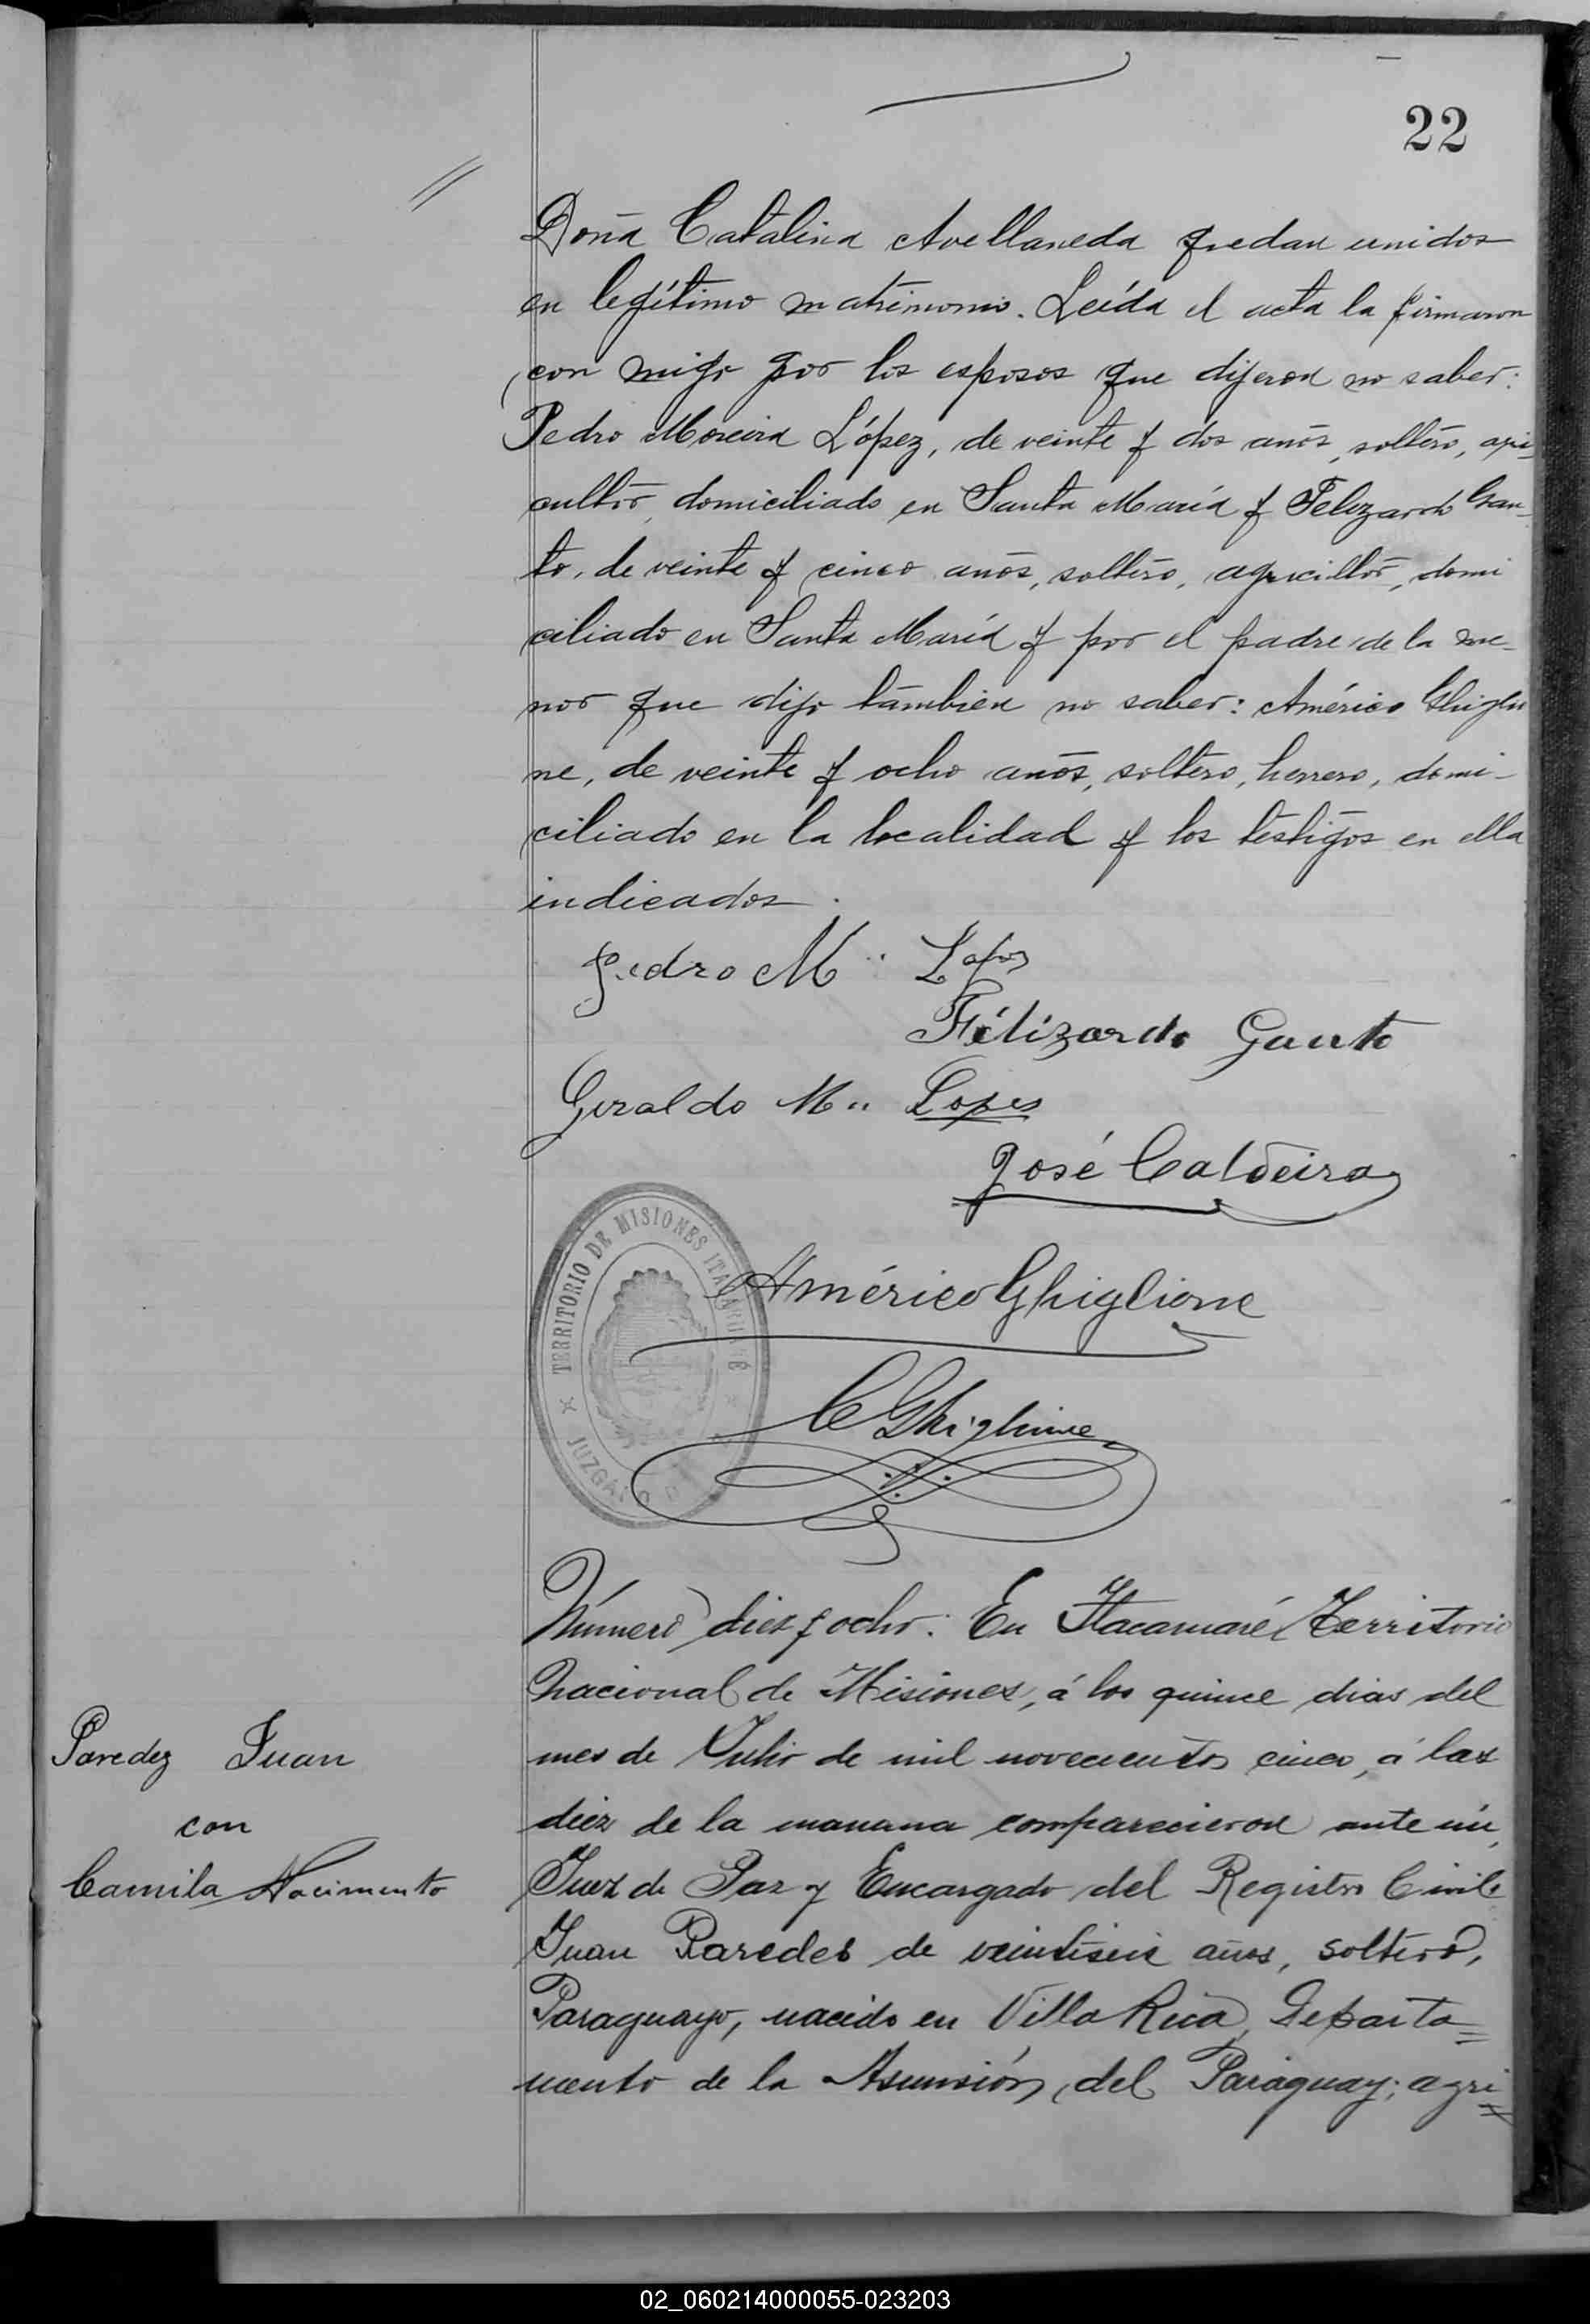 22
Doña Catalina Avellaneda quedan unidos
en legítimo matrimonio. Leída el acta la firmaron
con migo por los esposos que dijeron no saber:
Pedro Moreira López, de veinte y dos años, soltero, agri=
cultor, domiciliado en Santa María y Felizardo Gau-
to, de veinte y cinco años, soltero, agricultor, domi
ciliado en Santa María y por el padre de la me-
nor que dijo tambien no saber: Américo Ghiglio
ne, de veinte y ocho años, soltero, herrero, domi-
ciliado en la localidad y los testigos en ella
indicados.
Pedro M. Lopes
Félizardo Gauto
Geraldo M. Lopes
José Caldeira
TERRITORIO DE MISIONES ITACARUARÉ
JUZGADO
Américo Ghiglione
C Ghiglione
Número diez y ocho. En Itacaruaré Territorio
Nacional de Misiones, á los quince dias del
mes de Julio de mil novecientos cinco, á las
diez de la manana comparecieron ante mi,
Juez de Paz y Encargado del Registro Civil
Juan Paredes de veintiseis años, soltero,
Paraguayo, nacido en Villa Rica, Departa=
mento de la Asunsión, del Paraguay; agri=
Paredez Juan
con
Camila Nacimento
02_060214000055-023203